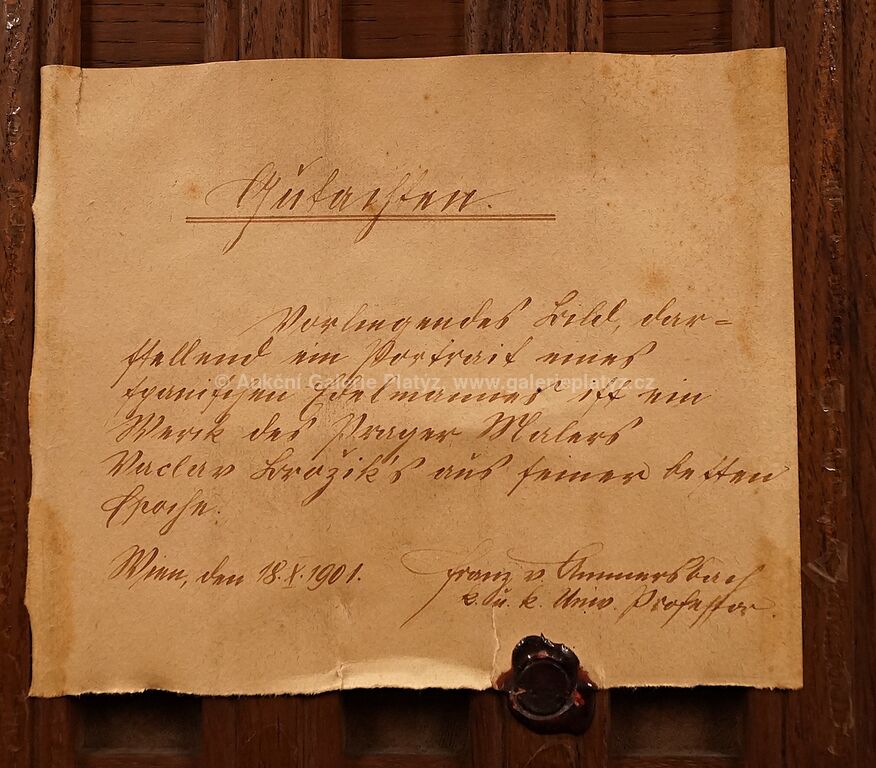 Gutachten.
Vorliegendes Bild, dar=
stellend ein Portrait eines
© Aukční Galerie Platýz, www.galerieplatyz.cz
spanischen Edelmannes ist ein
Werk des Prager Malers
Vaclav Brožik's aus seiner besten
Epoche.
Wien, den 18.X.1901.
Franz v. Ammersbach
k. u. k. Univ. Professor.